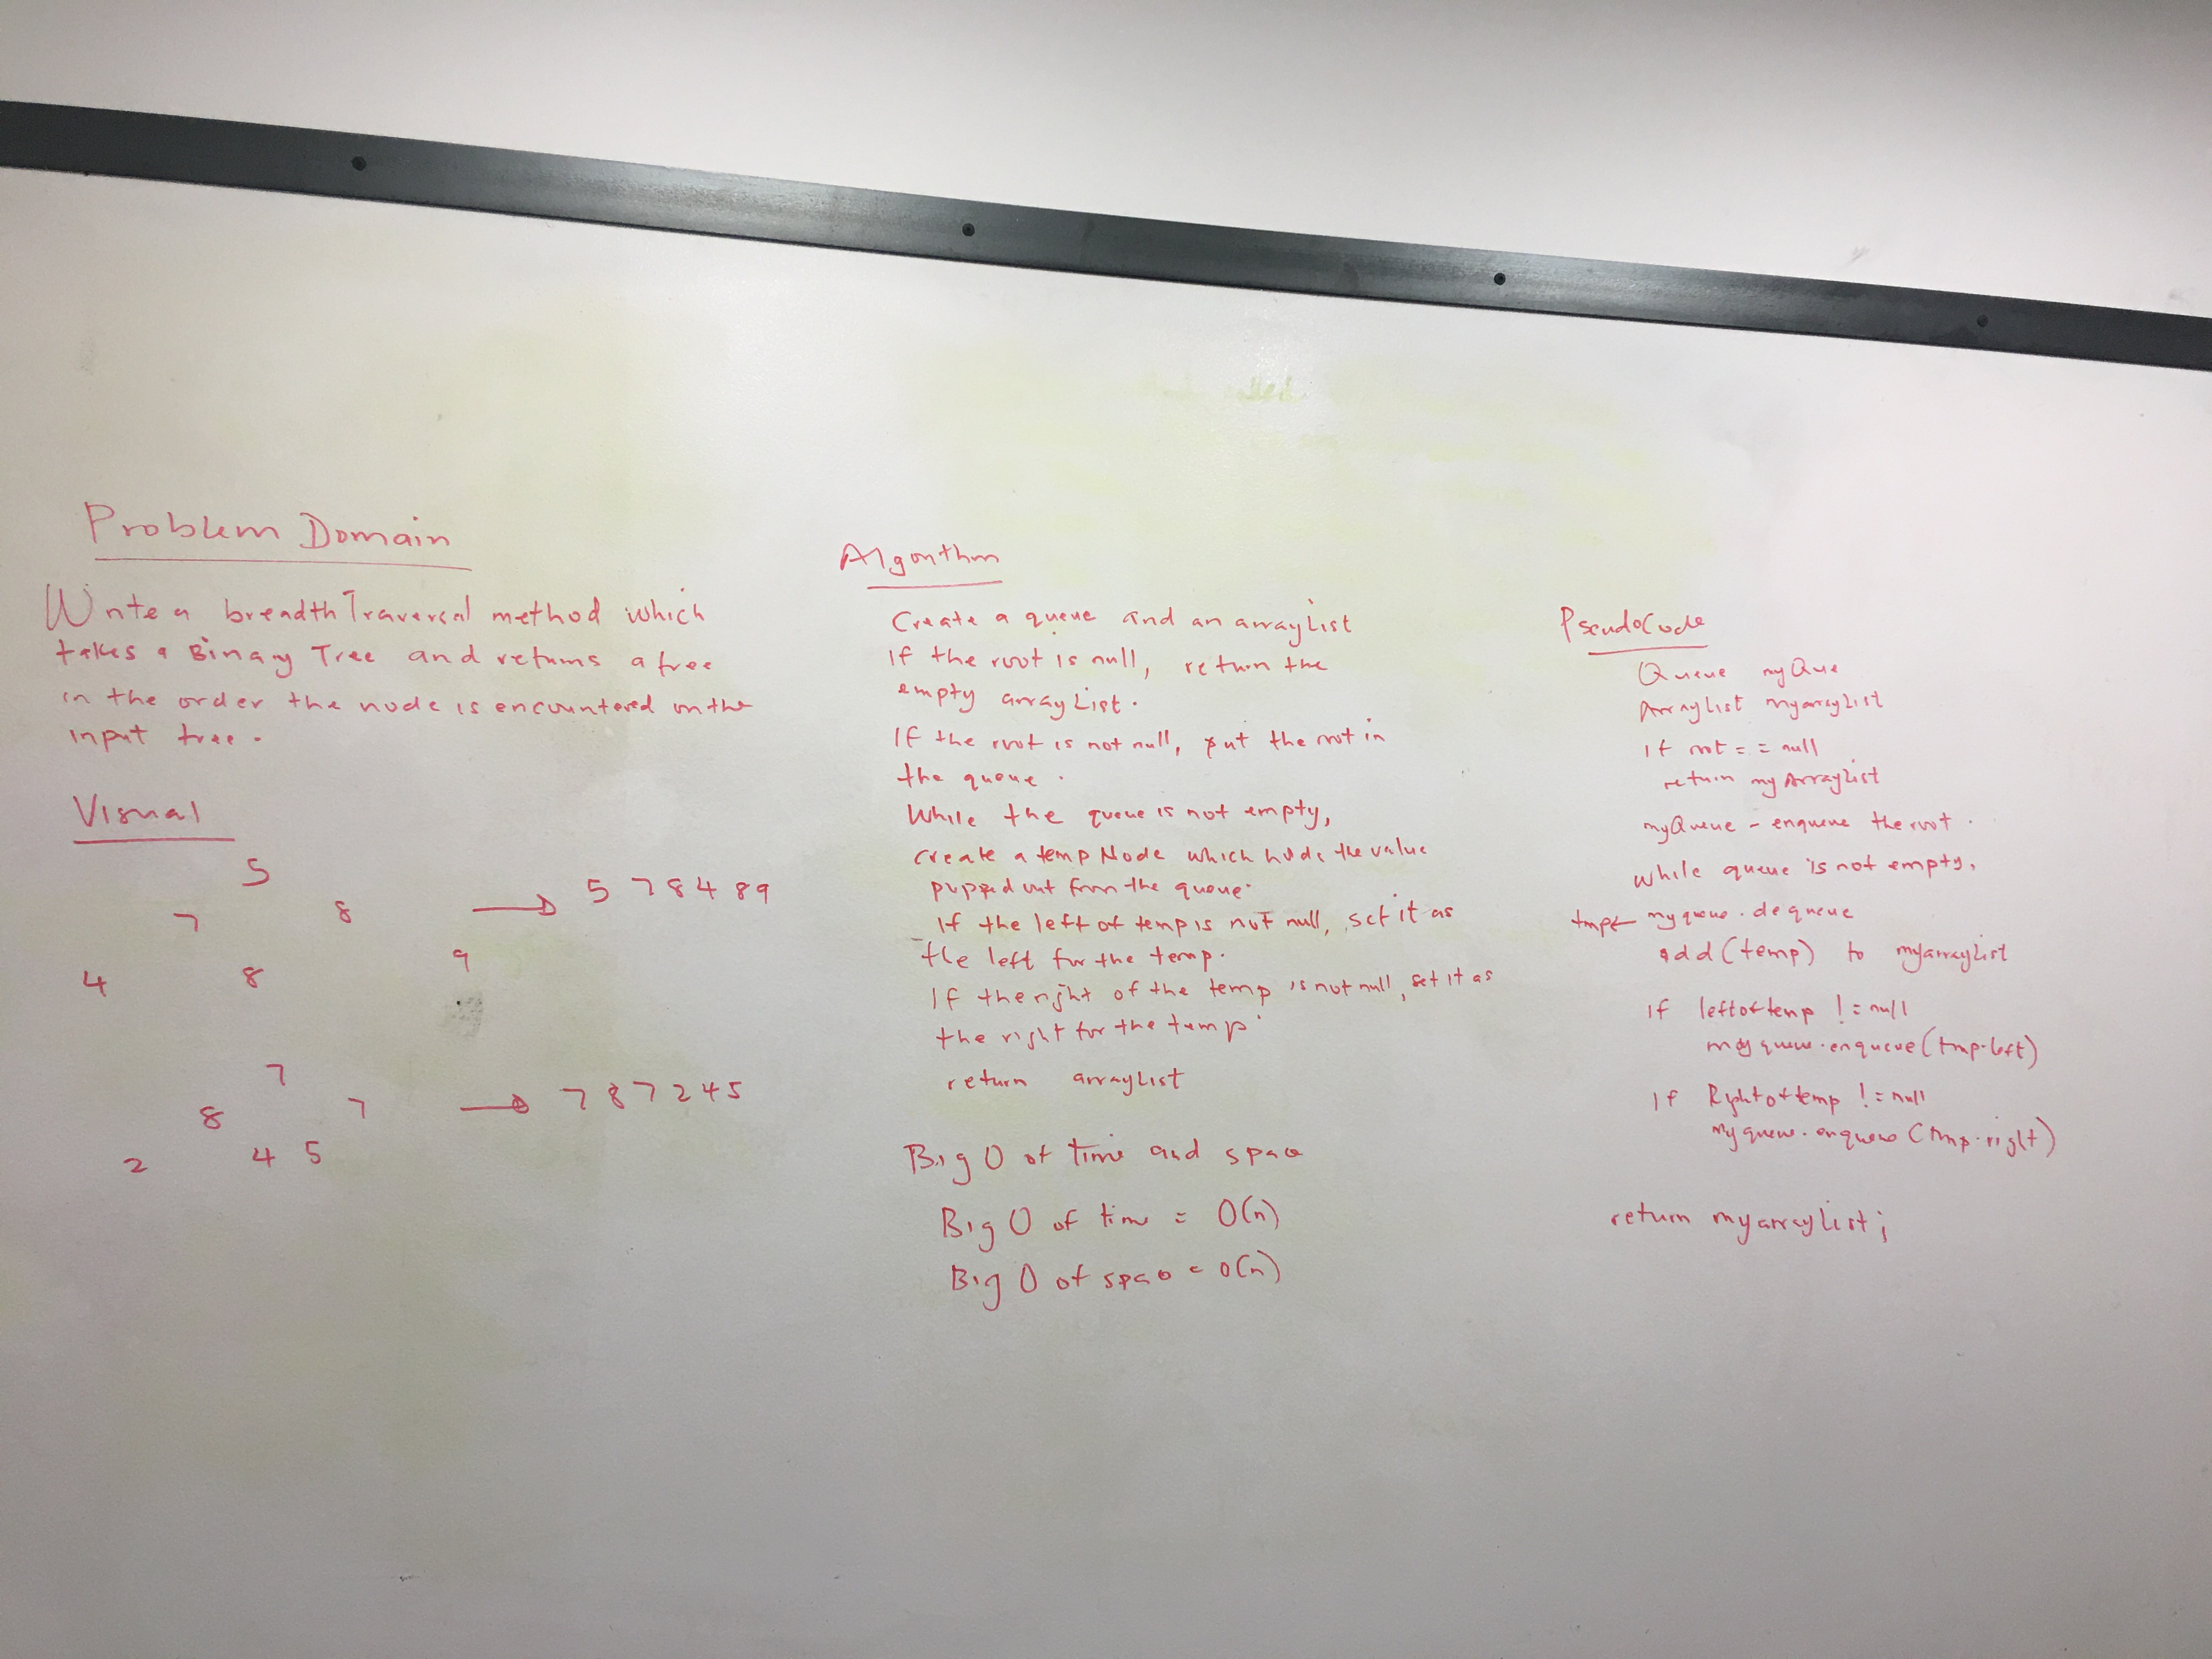 Problem Domain
Write a breadthTraversal method which
takes a Binary Tree and returns a tree
in the order the node is encountered on the
input tree.
Visual
5
7 8
4 8 9
→ 5 7 8 4 8 9
7
8 7
2 4 5
→ 7 8 7 2 4 5
Algorithm
Create a queue and an arrayList
If the root is null, return the
empty arrayList.
If the root is not null, put the root in
the queue.
While the queue is not empty,
create a temp Node which holds the value
popped out from the queue.
If the left of temp is not null, set it as
the left for the temp.
If the right of the temp is not null, set it as
the right for the temp.
return arrayList
Big O of time and space
Big O of time = O(n)
Big O of space = O(n)
PseudoCode
Queue myQue
ArrayList myarrayList
If root == null
return myArrayList
myQueue - enqueue the root.
while queue is not empty,
tmp← myqueue.dequeue
add(temp) to myarrayList
If leftoftemp != null
myqueue.enqueue(tmp.left)
If Rightoftemp != null
myqueue.enqueue(tmp.right)
return myarrayList;